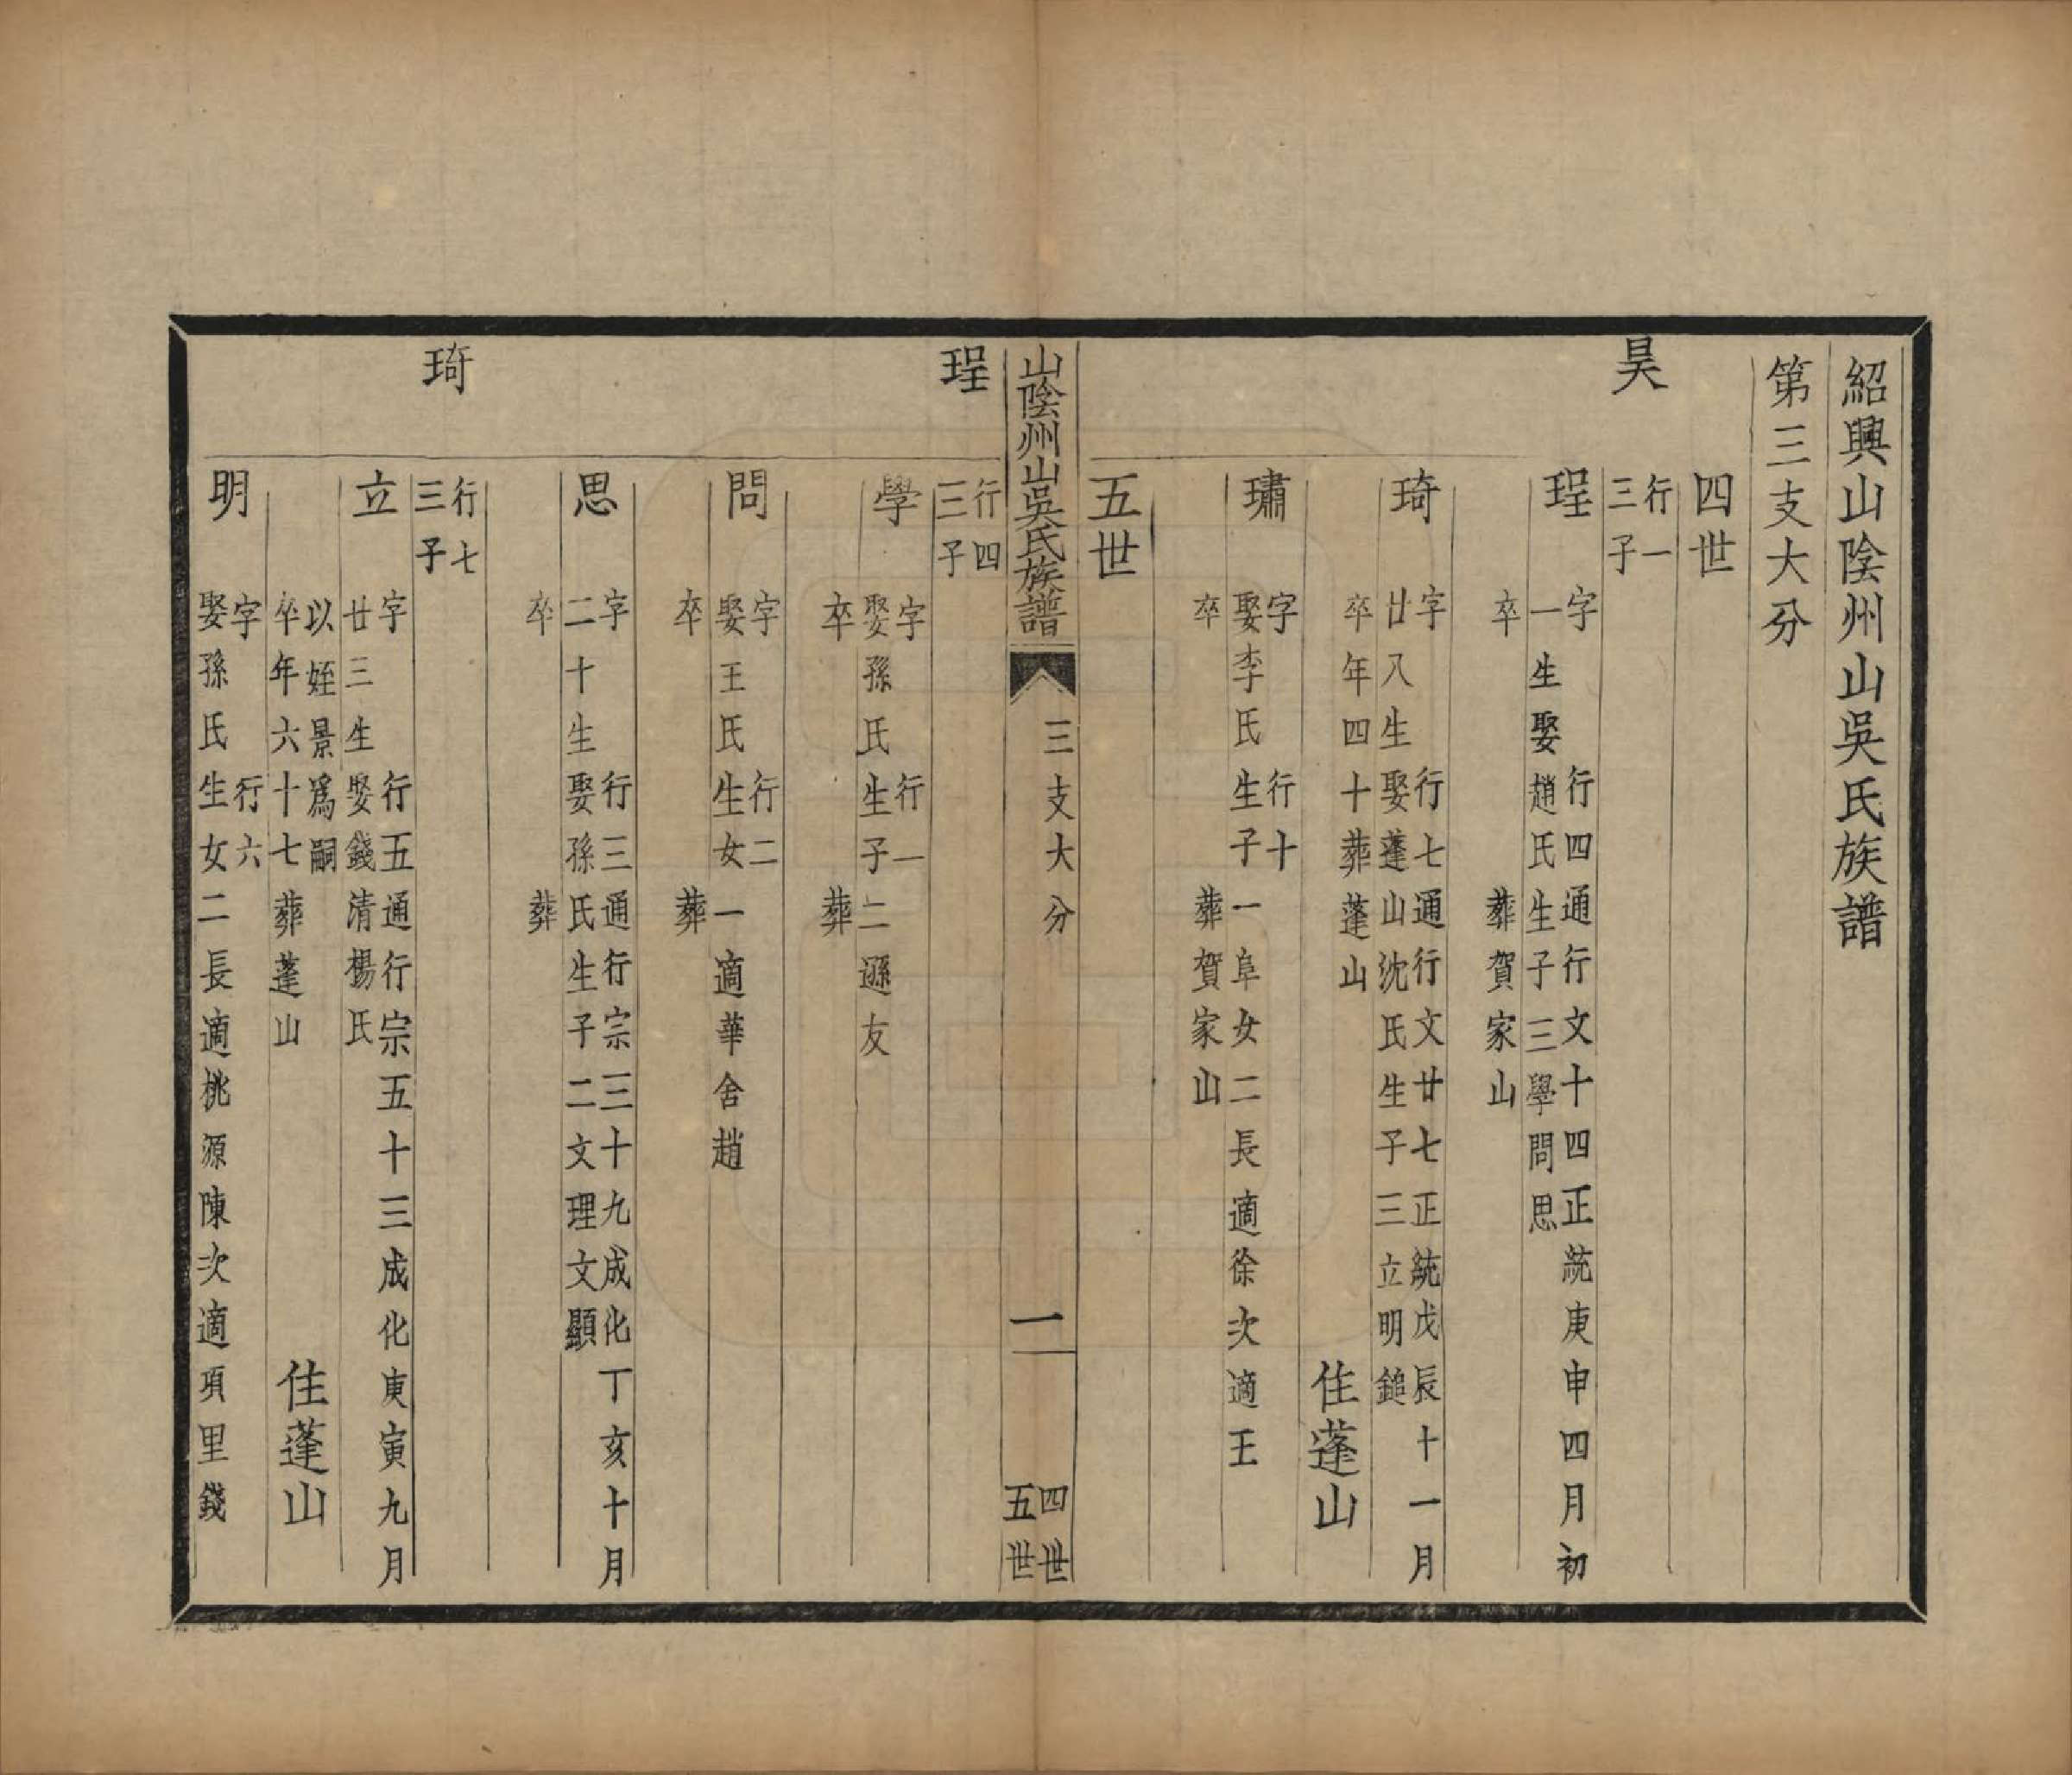 紹興山陰州山吳氏族譜
第三支大分
四世
昊
行一
三子
珵
字 行四通行文十四正統庚申四月初
一生娶趙氏生子三學問思
卒 葬賀家山
琦
字 行七通行文廿七正統戊辰十一月
廿八生娶蓬山沈氏生子三立明鎚
卒年四十葬蓬山
住蓬山
璛
字 行十
娶李氏生子一阜女二長適徐次適王
卒 葬賀家山
五世
山陰州山吳氏族譜
三支大分
一
四世
五世
珵
行四
三子
學
字 行一
娶孫氏生子二遜友
卒 葬
問
字 行二
娶王氏生女一適華舍趙
卒 葬
思
字 行三通行宗三十九成化丁亥十月
二十生娶孫氏生子二文理文顯
卒 葬
琦
行七
三子
立
字 行五通行宗五十三成化庚寅九月
廿三生娶錢清楊氏
以姪景爲嗣
卒年六十七葬蓬山
住蓬山
明
字 行六
娶孫氏生女二長適桃源陳次適項里錢